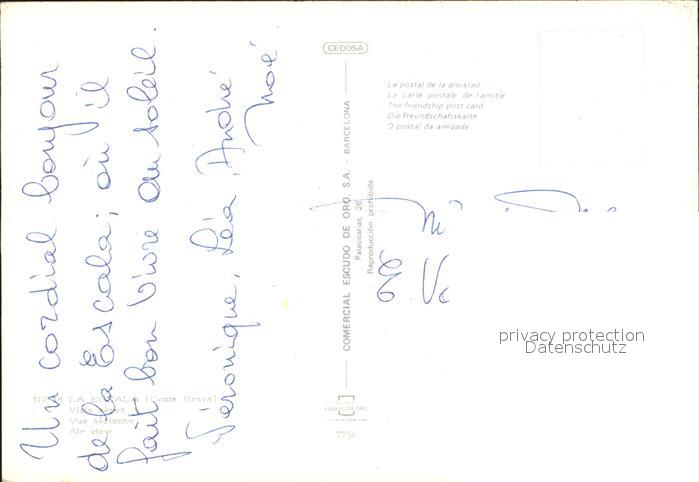 Un cordial bonjour
de la Escala, où il
fait bon vivre au soleil.
Véronique, Léa, André
Noé
No. 48 LA ESCALA (Costa Brava)
Vista aérea
Vue aérienne
Air view
CEDOSA
COMERCIAL ESCUDO DE ORO, S.A. - BARCELONA
Palaudarias, 26
Reproducción prohibida
ESCUDO DE ORO
7756
La postal de la amistad
La carte postale de l'amitie
The friendship post card
Die Freundschaftskarte
O postal da amizade
privacy protection
Datenschutz